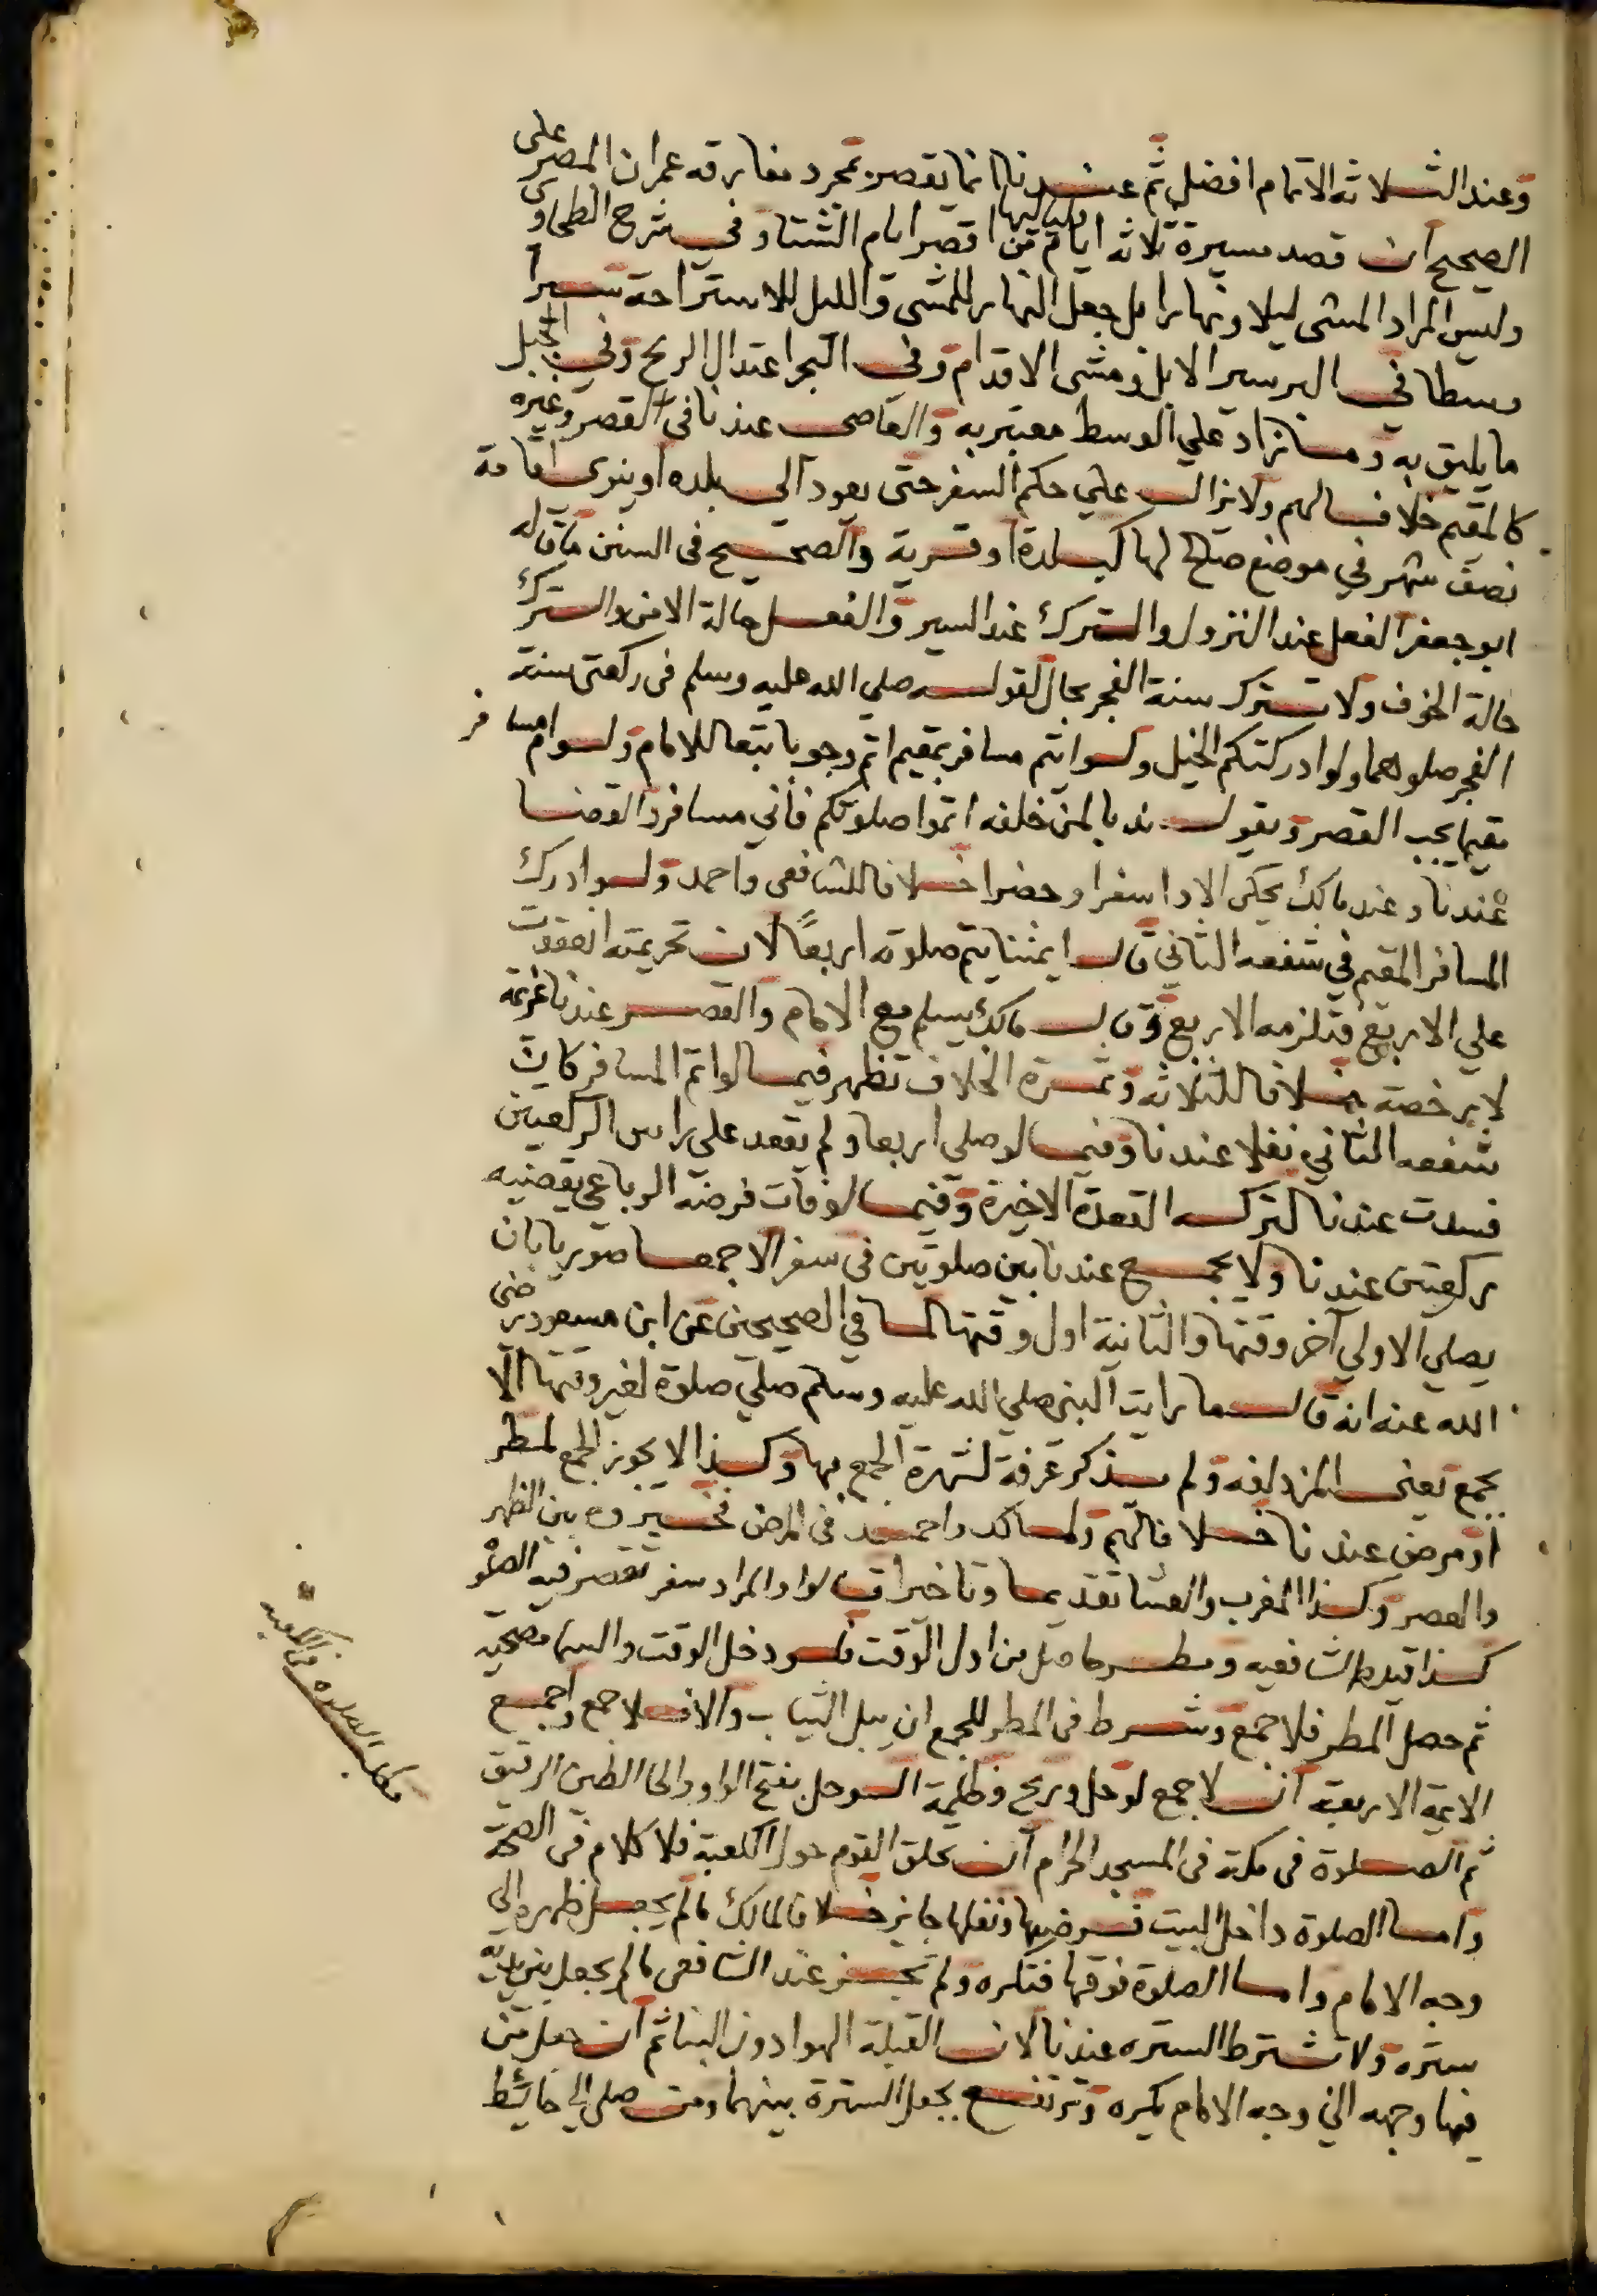 وعند الثلاثة الاتمام افضل ثم عندنا انما يقصر بمجرد مفارقه عمران المصر على
الصحيح ان قصد مسيرة ثلاثه ايام بلياليها من اقصر ايام الشتا وفي شرح الطحاوى
وليس المراد المشى ليلا ونهارا بل جعل النهار للمشى والليل للاستراحة سيرا
وسطا في البر سير الابل ومشى الاقدام وفى البحر اعتدال الريح وفي الجبل
ما يليق به وما زاد علي الوسط معتبر به والعاصى عندنا فى القصر وغيره
كالمقيم خلافا لهم ولا يزال علي حكم السفر حتى يعود الى بلده او ينوى اقامة
نصف شهر في موضع صالح لها كبلدة او قرية والصحيح فى السنن ما قاله
ابو جعفر الفعل عند النزول والترك عند السير والفعل حالة الامن والترك
حالة الخوف ولا تترك سنة الفجر بحال لقوله صلي الله عليه وسلم فى ركعتى سنة
الفجر صلوهما ولو ادركتكم الخيل ولو ايتم مسافر بمقيم اتم وجوبا تبعا للامام ولو ام مسافر
مقيما يجب القصر ويقول ندبا لمن خلفه اتموا صلوتكم فاني مسافر والقضا
عندنا وعند مالك يحكى الادا سفرا وحضرا خلافا للشافعى واحمد ولو ادرك
المسافر المقيم في شفعه الثاني قال ايمتنا يتم صلوته اربعاً لان تحريمته انعقدت
علي الاربع فتلزمه الاربع وقال مالك يسلم مع الامام والقصر عندنا عزيمة
لا رخصة خلافا للثلاثه وثمرة الخلاف تظهر فيما لو اتم المسافر كان
شفعه الثاني نفلا عندنا وفيما لو صلي اربعا ولم يقعد على راس الركعتين
فسدت عندنا لتركه القعدة الاخيرة وفيما لو فات فرضه الرباعي يقضيه
ركعتين عندنا ولا يجمع عندنا بين صلوتين فى سفر الا جمعا صوريا بان
يصلي الاولي آخر وقتها والثانية اول وقتها لما في الصحيحين عن ابن مسعود رضى
الله عنه انه قال ما رايت النبى صلي الله عليه وسلم صلي صلوة لغير وقتها الا
بجمع يعنى المزدلفه ولم يذكر عرفة لشهرة الجمع بها وكذا لا يجوز الجمع لمطر
او مرض عندنا خلافا لهم ولمالك واحمد فى المرض فخيروه بين الظهر
والعصر وكذا المغرب والعشا تقديما وتاخيرا قالوا والمراد سفر تقصر فيه الصلو
كذا قيده الشافعيه ومطر حاصل من اول الوقت فلو دخل الوقت والسما مصحية
ثم حصل المطر فلا جمع وشرط فى المطر للجمع ان يبل الثياب والا فلا جمع واجمع
الايمة الاربعة ان لا جمع لوحل وريح وظلمة الوحل بفتح الواو والحا الطين الرقيق
ثم الصلوة فى مكة فى المسجد الحرام ان تحلق القوم حول الكعبة فلا كلام فى الصحة
واما الصلوة داخل البيت فرضها ونفلها جايز خلافا لمالك ما لم يجعل ظهره الي
وجه الامام واما الصلوة فوقها فتكره ولم تجز عند الشافعى ما لم يجعل بين يديه
ستره ولا تشترط الستره عندنا لان القبلة الهوا دون البنا ثم ان جعل من
فيها وجهه الي وجه الامام يكره وترتفع بجعل السترة بينهما ومن صلي الي حائط
مطلب الصلاه في الكعبه